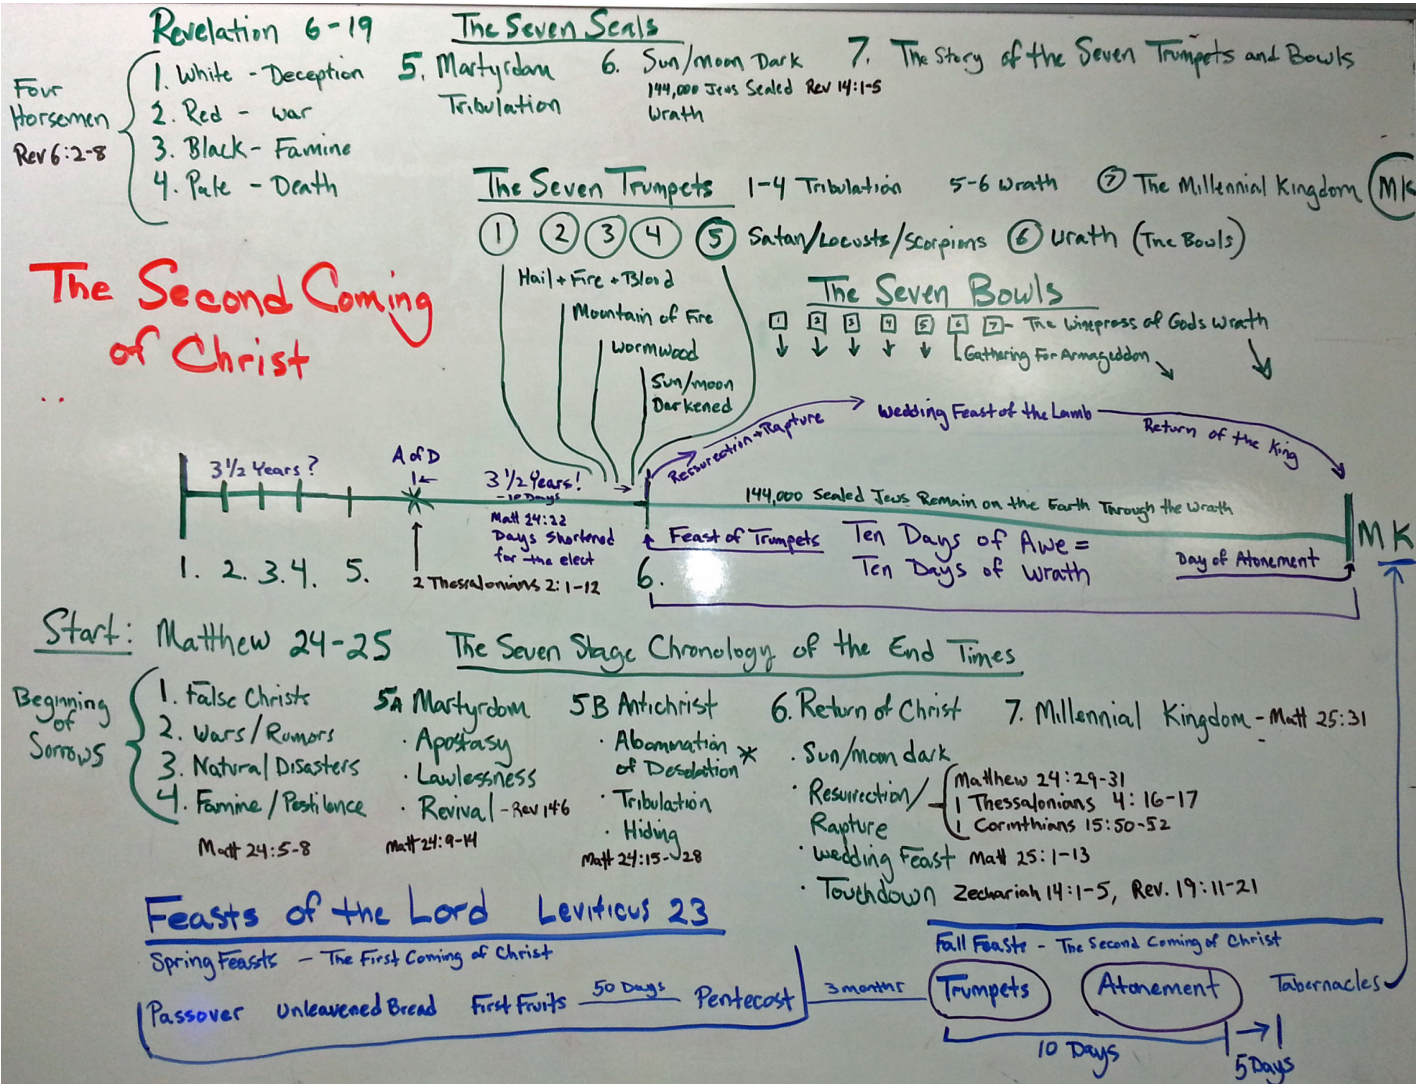 Revelation 6-19
Four
Horsemen
Rev 6:2-8
1. White - Deception
2. Red - war
3. Black - Famine
4. Pale - Death
The Seven Seals
5. Martyrdom
Tribulation
6. Sun/moon Dark
144,000 Jews Sealed Rev 14:1-5
Wrath
7. The Story of the Seven Trumpets and Bowls
The Seven Trumpets 1-4 Tribulation 5-6 Wrath ⑦ The Millennial Kingdom MK
① ② ③ ④ ⑤ Satan/Locusts/Scorpions ⑥ Wrath (The Bowls)
Hail + Fire + Blood
Mountain of Fire
Wormwood
Sun/moon
Darkened
The Second Coming
of Christ
The Seven Bowls
1 2 3 4 5 6 7 - The Winepress of Gods Wrath
Gathering For Armageddon
Ressurection + Rapture
Wedding Feast of the Lamb
Return of the King
3 1/2 Years?
A of D
3 1/2 Years!
-10 Days
Matt 24:22
Days Shortened
for the elect
2 Thessalonians 2:1-12
144,000 Sealed Jews Remain on the Earth Through the Wrath
Feast of Trumpets
Ten Days of Awe =
Ten Days of Wrath
Day of Atonement
MK
1. 2. 3. 4. 5. 6.
Start: Matthew 24-25 The Seven Stage Chronology of the End Times
Beginning
of
Sorrows
1. False Christs
2. Wars/Rumors
3. Natural Disasters
4. Famine/Pestilence
Matt 24:5-8
5A Martyrdom
· Apostasy
· Lawlessness
· Revival - Rev 14:6
Matt 24:9-14
5B Antichrist
· Abomnation
of Desolation *
· Tribulation
· Hiding
Matt 24:15-28
6. Return of Christ
· Sun/moon dark
· Resurrection/
Rapture
Matthew 24:29-31
1 Thessalonians 4:16-17
1 Corinthians 15:50-52
· Wedding Feast Matt 25:1-13
· Touchdown Zechariah 14:1-5, Rev. 19:11-21
7. Millennial Kingdom - Matt 25:31
Feasts of the Lord Leviticus 23
Spring Feasts - The First Coming of Christ
Passover Unleavened Bread First Fruits 50 Days Pentecost
3 months
Fall Feasts - The Second Coming of Christ
Trumpets Atonement Tabernacles
10 Days
5 Days